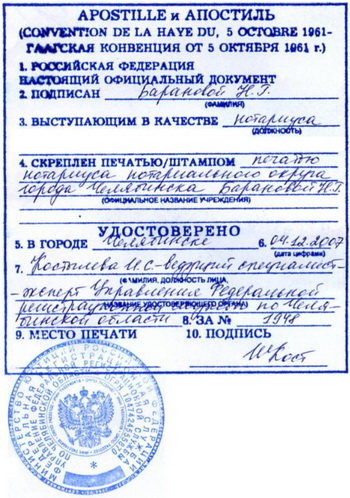 APOSTILLE и АПОСТИЛЬ
(CONVENTION DE LA HAYE DU, 5 OCTOBRE 1961-
ГААГСКАЯ КОНВЕНЦИЯ ОТ 5 ОКТЯБРЯ 1961 г.)
1. РОССИЙСКАЯ ФЕДЕРАЦИЯ
НАСТОЯЩИЙ ОФИЦИАЛЬНЫЙ ДОКУМЕНТ
2. ПОДПИСАН Барановой Н.Г.
(ФАМИЛИЯ)
3. ВЫСТУПАЮЩИМ В КАЧЕСТВЕ нотариуса
(ДОЛЖНОСТЬ)
4. СКРЕПЛЕН ПЕЧАТЬЮ/ШТАМПОМ печатью
нотариуса нотариального округа
города Челябинска Барановой Н.Г.
(ОФИЦИАЛЬНОЕ НАЗВАНИЕ УЧРЕЖДЕНИЯ)
УДОСТОВЕРЕНО
5. В ГОРОДЕ Челябинске 6. 04.12.2007
(дата цифрами)
7. Костылева И.С.-ведущий специалист-
(ФАМИЛИЯ, ДОЛЖНОСТЬ ЛИЦА,
-эксперт Управления Федеральной
НАЗВАНИЕ УДОСТОВЕРЯЮЩЕГО ОРГАНА)
регистрационной службы по Челя-
бинской области 8. ЗА № 1948
9. МЕСТО ПЕЧАТИ 10. ПОДПИСЬ